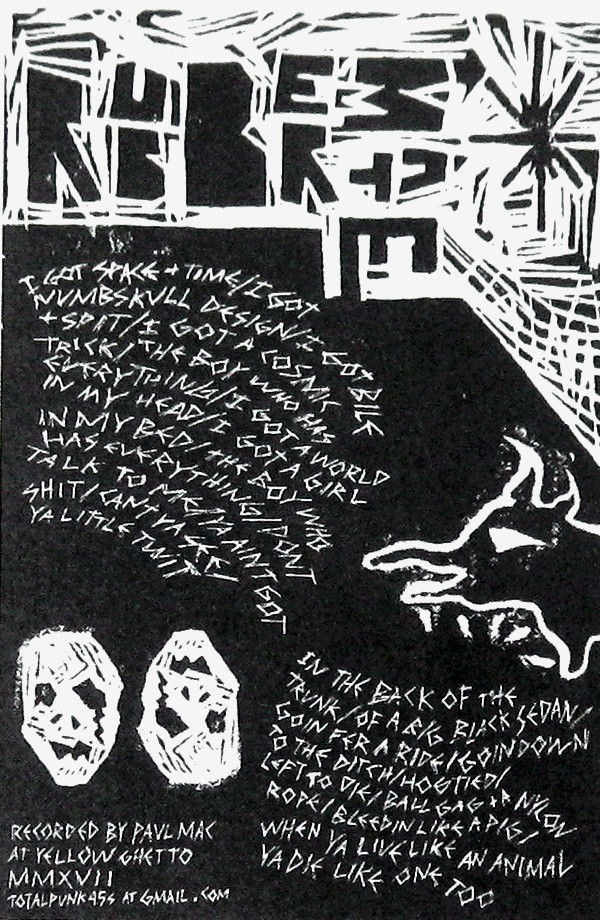 RUBBER MATE
I GOT SPACE + TIME/I GOT
NUMBSKULL DESIGN/I GOT BILE
+ SPIT/I GOT A COSMIC
TRICK/THE BOY WHO HAS
EVERYTHING/I GOT A WORLD
IN MY HEAD/I GOT A GIRL
IN MY BED/THE BOY WHO
HAS EVERYTHING/DONT
TALK TO ME/YA AINT GOT
SHIT/CANT YA SEE/
YA LITTLE TWIT
IN THE BACK OF THE
TRUNK/OF A BIG BLACK SEDAN/
GOIN FER A RIDE/GOIN DOWN
TO THE DITCH/HOGTIED/
LEFT TO DIE/BALL GAG + A NYLON
ROPE/BLEEDIN LIKE A PIG/
WHEN YA LIVE LIKE AN ANIMAL
YA DIE LIKE ONE TOO
RECORDED BY PAUL MAC
AT YELLOW GHETTO
MMXVII
TOTALPUNK45S AT GMAIL.COM